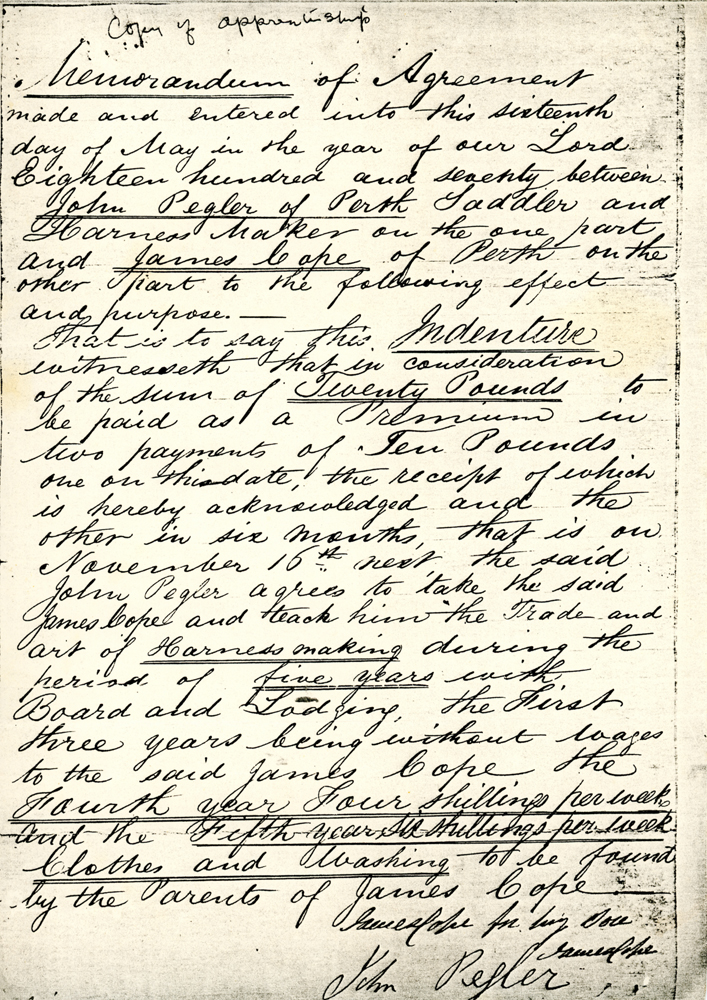 Copy of apprentiship
Memorandum of Agreement
made and entered into this sixteenth
day of May in the year of our Lord
Eighteen hundred and seventy between
John Pegler of Perth Saddler and
Harness Maker on the one part
and James Cope of Perth on the
other part to the following effect
and purpose. —
That is to say this Indenture
witnesseth that in consideration
of the sum of Twenty Pounds to
be paid as a Premium in
two payments of Ten Pounds
one on this date, the receipt of which
is hereby acknowledged and the
other in six months, that is on
November 16th next, the said
John Pegler agrees to take the said
James Cope and teach him the Trade and
art of Harnessmaking during the
period of five years with
Board and Lodging, the First
three years being without wages
to the said James Cope the
Fourth year Four shillings per week
and the Fifth year Six shillings per week
Clothes and Washing to be found
by the Parents of James Cope —
James Cope for his Son
James Cope
John Pegler